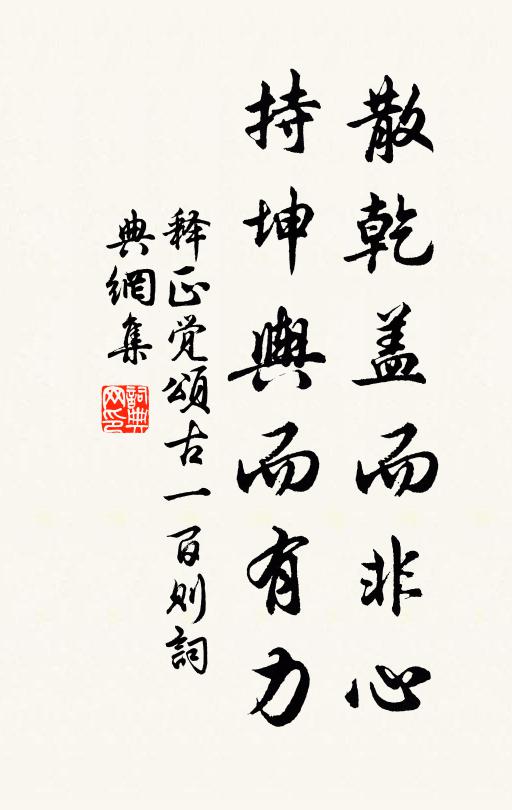 散乾盖而非心
持坤舆而有力
释正觉颂古一百则詞
典網集
詞典网印